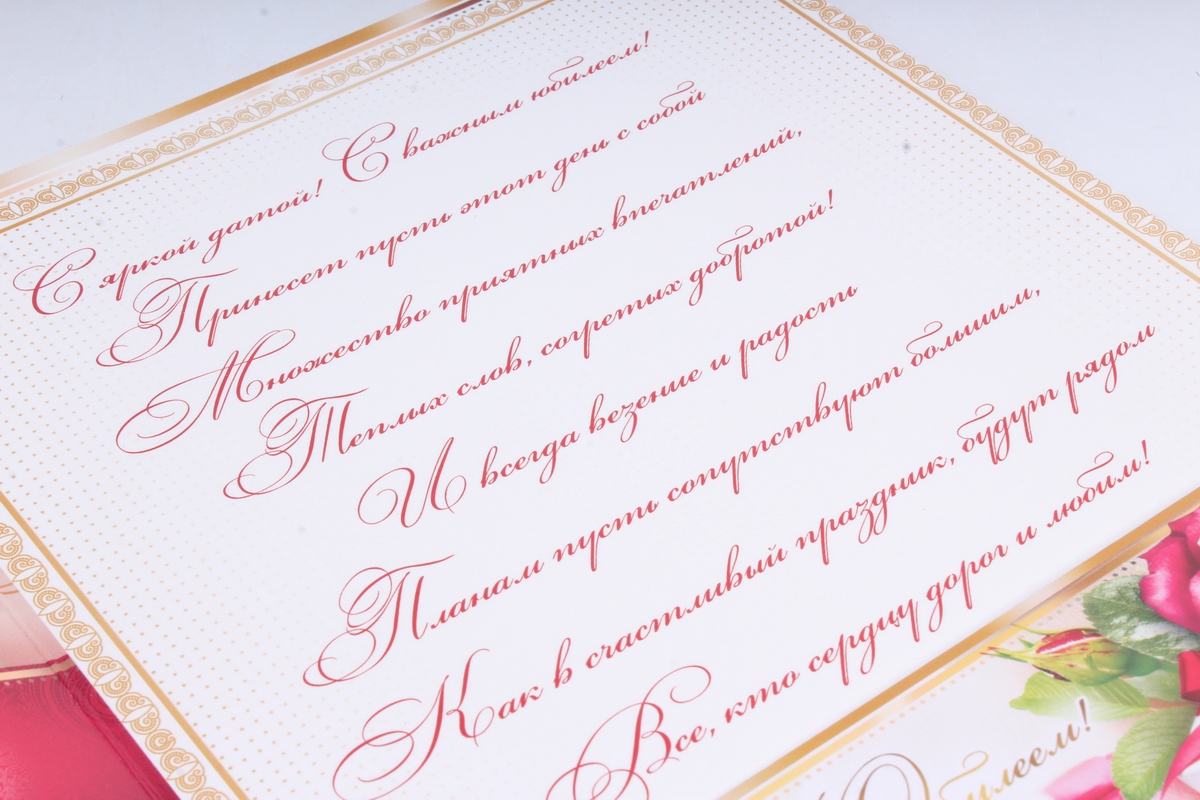 С яркой датой! С важным юбилеем!
Принесет пусть этот день с собой
Множество приятных впечатлений,
Теплых слов, согретых добротой!
И всегда везение и радость
Планам пусть сопутствуют большим,
Как в счастливый праздник, будут рядом
Все, кто сердцу дорог и любим!
Юбилеем!